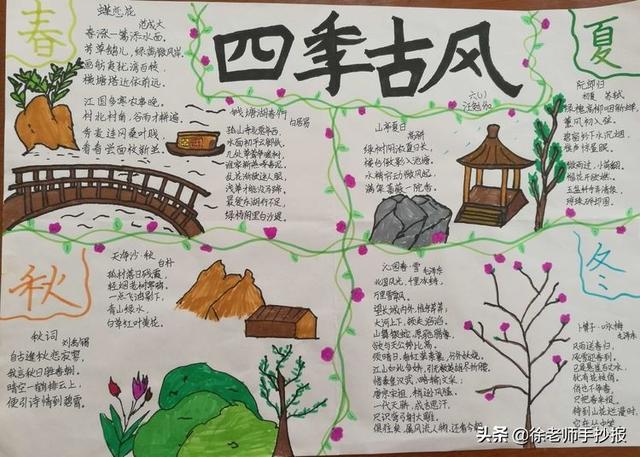 四季古风
六(1)
春
蝶恋花
范成大
春涨一篙添水面。
芳草鹅儿，绿满微风岸。
画舫夷犹湾百转。
横塘塔近依前远。
江国多寒农事晚。
村北村南，谷雨才耕遍。
秀麦连冈桑叶贱。
看看尝面收新茧。
钱塘湖春行
白居易
孤山寺北贾亭西，
水面初平云脚低。
几处早莺争暖树，
谁家新燕啄春泥。
乱花渐欲迷人眼，
浅草才能没马蹄。
最爱湖东行不足，
绿杨阴里白沙堤。
夏
阮郎归
初夏 苏轼
绿槐高柳咽新蝉。
薰风初入弦。
碧窗纱下水沉烟。
棋声惊昼眠。
微雨过，小荷翻。
榴花开欲然。
玉盆纤手弄清泉。
琼珠碎却圆。
山亭夏日
高骈
绿树阴浓夏日长，
楼台倒影入池塘。
水精帘动微风起，
满架蔷薇一院香。
秋
天净沙·秋
白朴
孤村落日残霞，
轻烟老树寒鸦，
一点飞鸿影下。
青山绿水，
白草红叶黄花。
秋词
刘禹锡
自古逢秋悲寂寥，
我言秋日胜春朝。
晴空一鹤排云上，
便引诗情到碧霄。
冬
沁园春·雪 毛泽东
北国风光，千里冰封，
万里雪飘。
望长城内外，惟余莽莽；
大河上下，顿失滔滔。
山舞银蛇，原驰蜡象，
欲与天公试比高。
须晴日，看红装素裹，分外妖娆。
江山如此多娇，引无数英雄竞折腰。
惜秦皇汉武，略输文采；
唐宗宋祖，稍逊风骚。
一代天骄，成吉思汗，
只识弯弓射大雕。
俱往矣，数风流人物，还看今朝
卜算子·咏梅
毛泽东
风雨送春归，
飞雪迎春到。
已是悬崖百丈冰，
犹有花枝俏。
俏也不争春，
只把春来报。
待到山花烂漫时，
她在丛中笑
头条 @徐老师手抄报